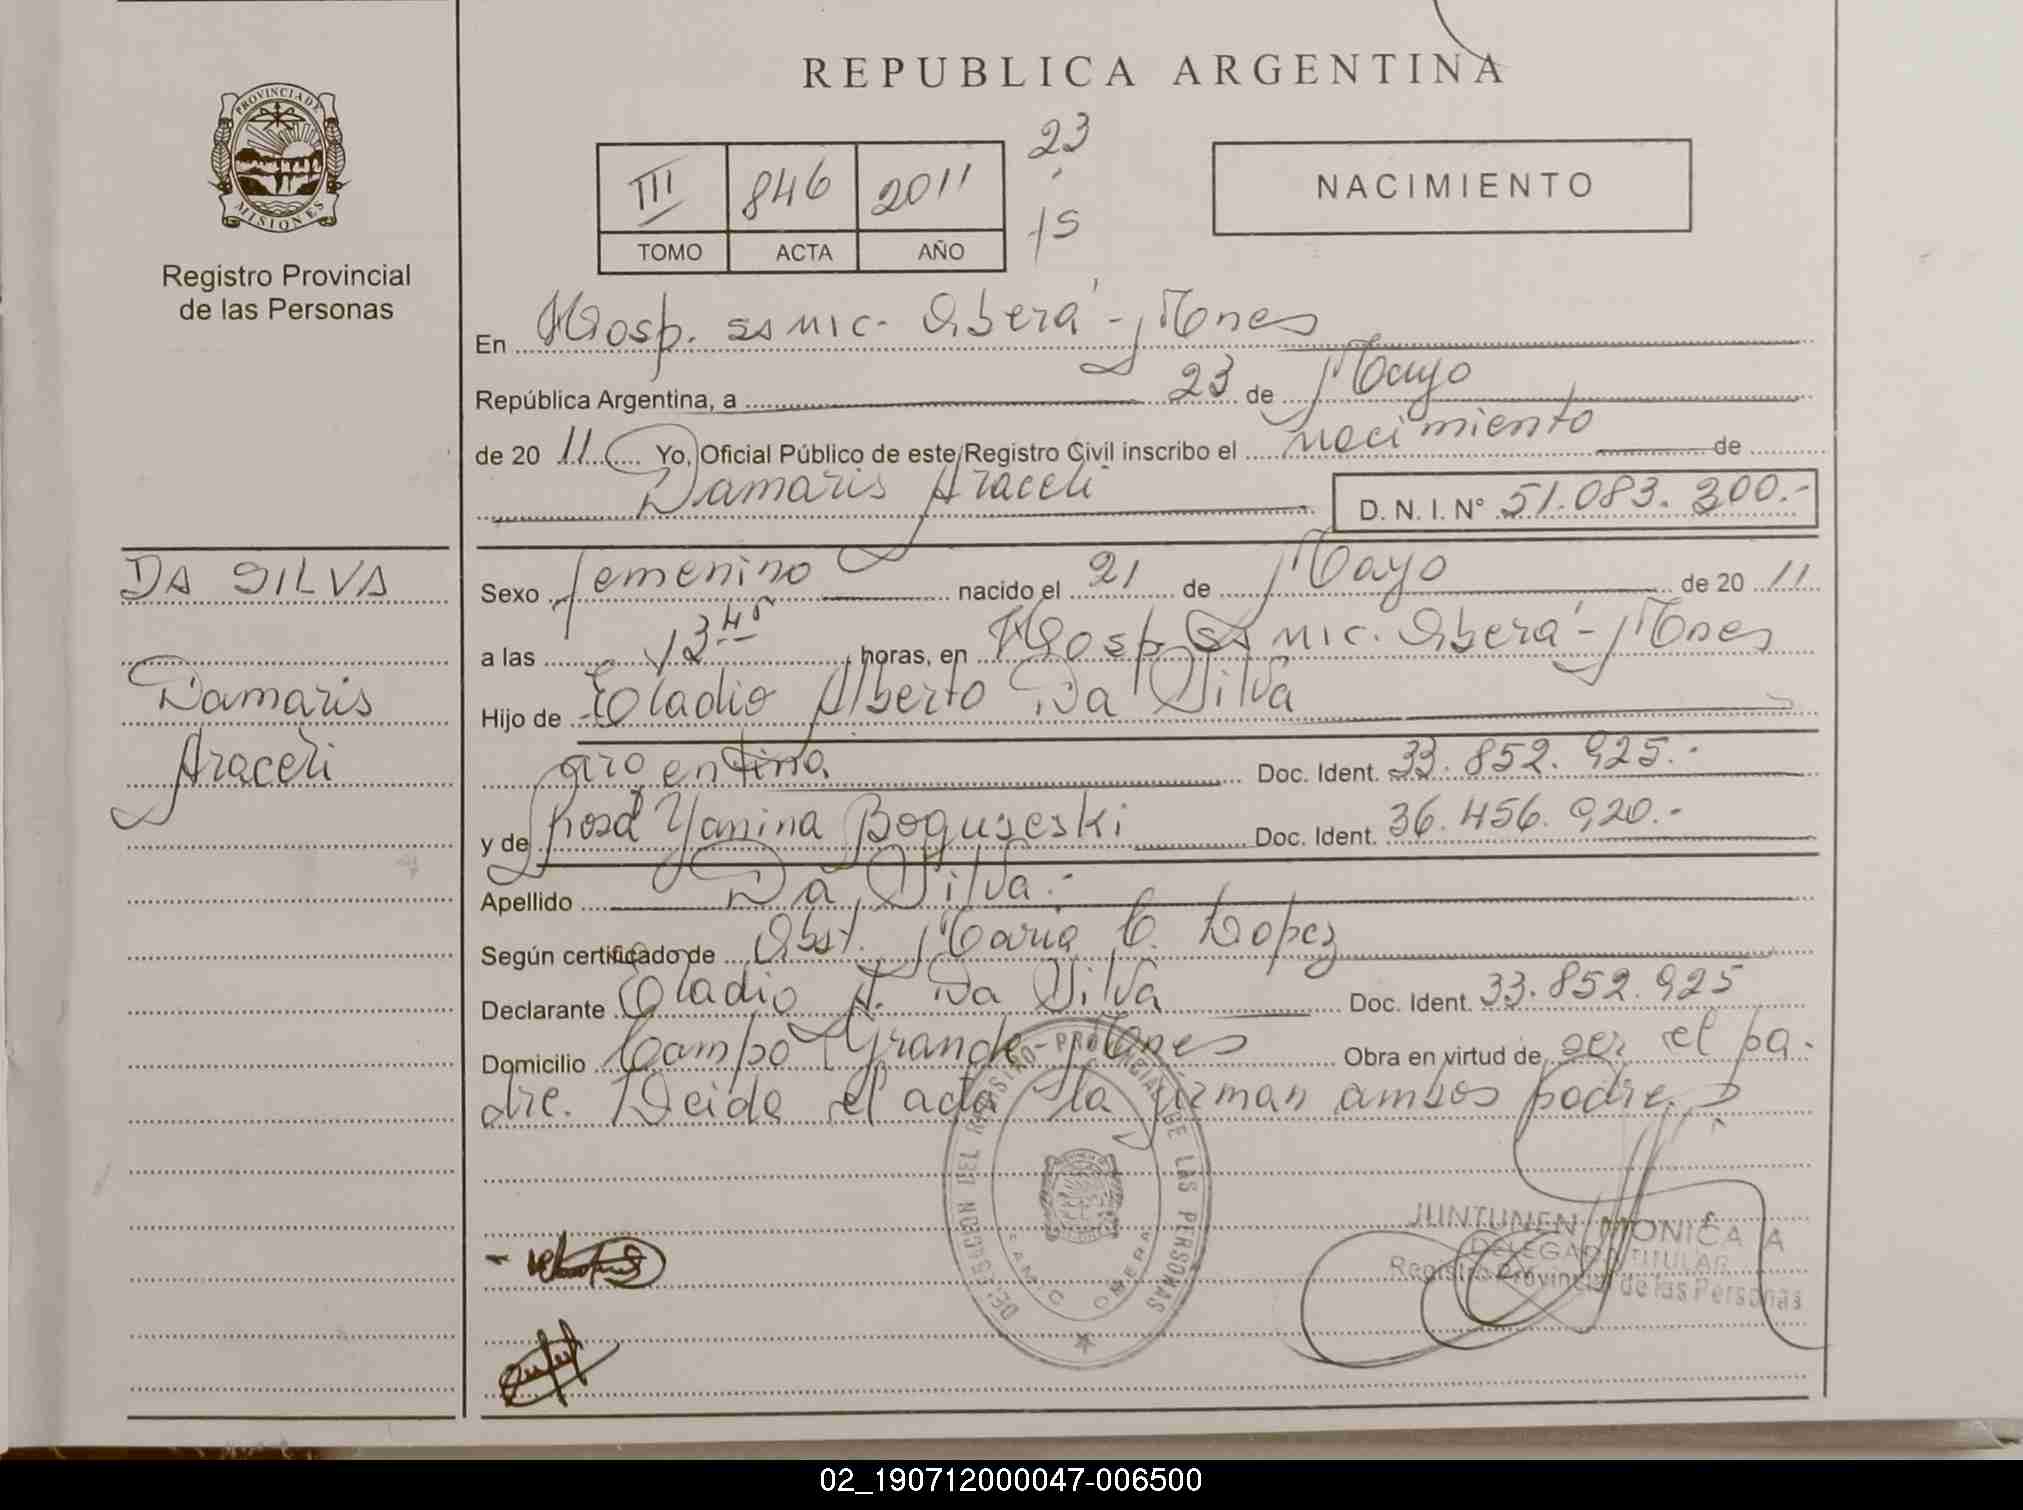 REPUBLICA ARGENTINA
PROVINCIA DE
MISIONES
Registro Provincial
de las Personas
III 846 2011
TOMO ACTA AÑO
23
15
NACIMIENTO
En Hosp. SSMIC. Oberá - Mnes
República Argentina, a 23 de Mayo
de 20 11 Yo, Oficial Público de este Registro Civil inscribo el nacimiento de
Damaris Araceli D. N. I. N° 51.083.300.-
DA SILVA
Damaris
Araceli
Sexo femenino nacido el 21 de Mayo de 20 11
a las 13 45 horas, en Hosp. SSMIC. Oberá - Mnes
Hijo de Eladio Alberto Da Silva
argentina Doc. Ident. 33.852.925.-
y de Rosa Yanina Boguseski Doc. Ident. 36.456.920.-
Apellido Da Silva.-
Según certificado de Obst. Maria C. Lopez
Declarante Eladio A. Da Silva Doc. Ident. 33.852.925
Domicilio Campo Grande Mnes Obra en virtud de ser el pa-
dre. Leida el acta la firman ambos padres
DELEGACION DEL REGISTRO PROVINCIAL DE LAS PERSONAS
JUNTUNEN MONICA A
DELEGADA TITULAR
Registro Provincial de las Personas
02_190712000047-006500